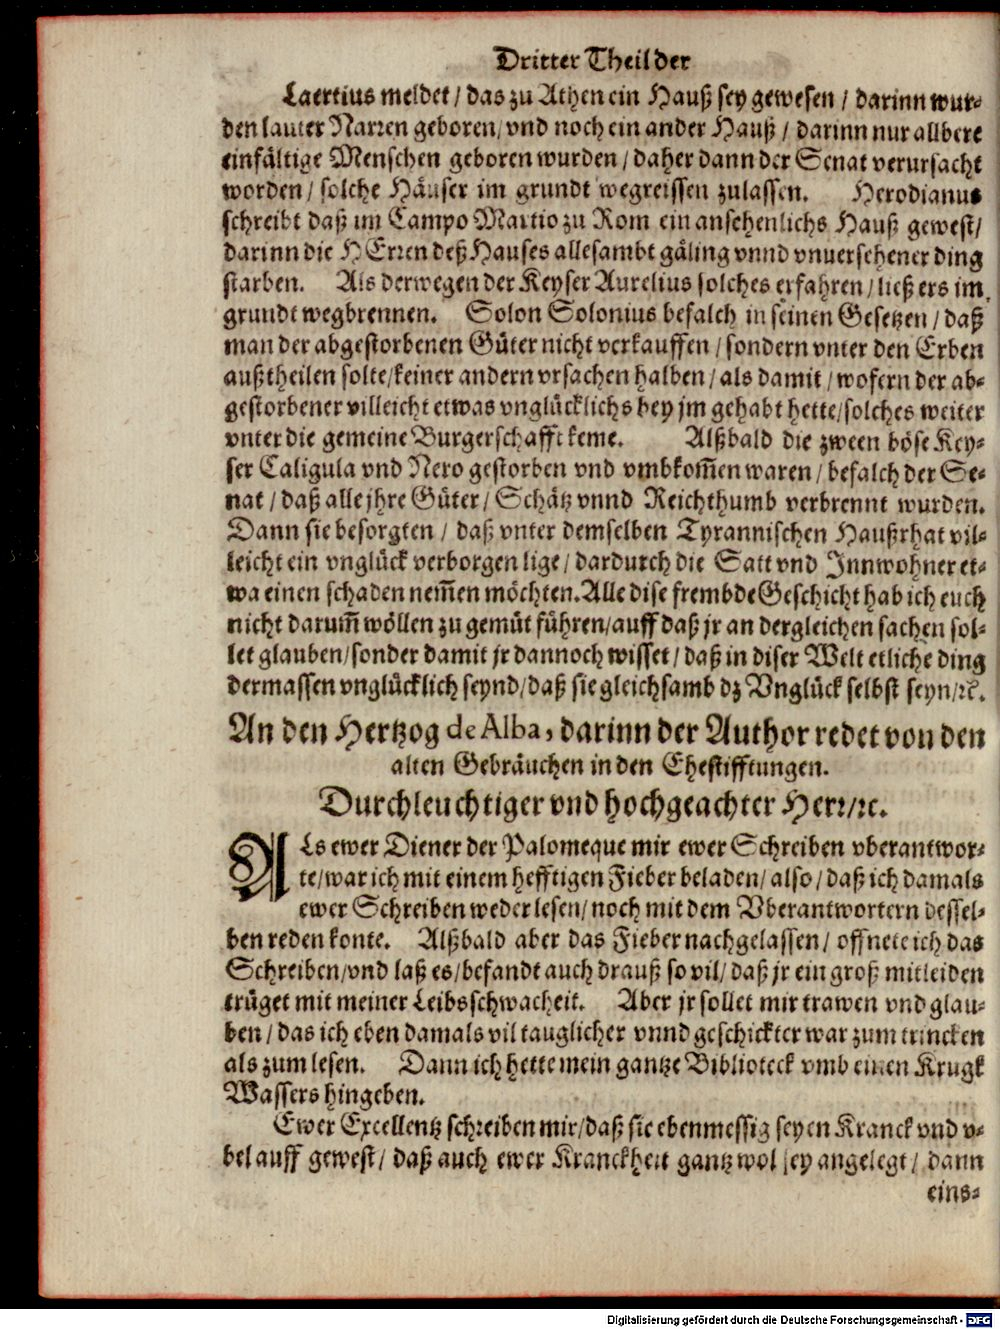 Dritter Theil der
Laertius meldet / das zu Athen ein Hauß sey gewesen / darinn wur-
den lauter Narren geboren / vnd noch ein ander Hauß / darinn nur allbere
einfältige Menschen geboren wurden / daher dann der Senat verursacht
worden / solche Häuser im grundt wegreissen zulassen. Herodianus
schreibt daß im Campo Martio zu Rom ein ansehenlichs Hauß gewest /
darinn die HErren deß Hauses allesambt gäling vnnd vnuersehener ding
starben. Als derwegen der Keyser Aurelius solches erfahren / ließ ers im
grundt wegbrennen. Solon Solonius befalch in seinen Gesetzen / daß
man der abgestorbenen Güter nicht verkauffen / sondern vnter den Erben
außtheilen solte / keiner andern vrsachen halben / als damit / wofern der ab-
gestorbener villeicht etwas vnglücklichs bey jm gehabt hette / solches weiter
vnter die gemeine Burgerschafft keme. Alßbald die zween böse Key-
ser Caligula vnd Nero gestorben vnd vmbkom̃en waren / befalch der Se-
nat / daß alle jhre Güter / Schätz vnnd Reichthumb verbrennt wurden.
Dann sie besorgten / daß vnter demselben Tyrannischen Haußrhat vil-
leicht ein vnglück verborgen lige / dardurch die Satt vnd Innwohner et-
wa einen schaden nem̃en möchten. Alle dise frembde Geschicht hab ich euch
nicht darum̃ wöllen zu gemüt führen / auff daß jr an dergleichen sachen sol-
let glauben / sonder damit jr dannoch wisset / daß in diser Welt etliche ding
dermassen vnglücklich seynd / daß sie gleichsamb dz Vnglück selbst seyn / ꝛc.
An den Hertzog de Alba, darinn der Author redet von den
alten Gebräuchen in den Ehestifftungen.
Durchleuchtiger vnd hochgeachter Herr / ꝛc.
ALs ewer Diener der Palomeque mir ewer Schreiben vberantwor-
te / war ich mit einem hefftigen Fieber beladen / also / daß ich damals
ewer Schreiben weder lesen / noch mit dem Vberantwortern dessel-
ben reden konte. Alßbald aber das Fieber nachgelassen / offnete ich das
Schreiben / vnd laß es / befandt auch drauß so vil / daß jr ein groß mitleiden
trüget mit meiner Leibsschwacheit. Aber jr sollet mir trawen vnd glau-
ben / das ich eben damals vil tauglicher vnnd geschickter war zum trincken
als zum lesen. Dann ich hette mein gantze Biblioteck vmb einen Krugk
Wassers hingeben.
Ewer Excellentz schreiben mir / daß sie ebenmessig seyen Kranck vnd v-
bel auff gewest / daß auch ewer Kranckheit gantz wol sey angelegt / dann
eins-
Digitalisierung gefördert durch die Deutsche Forschungsgemeinschaft - DFG